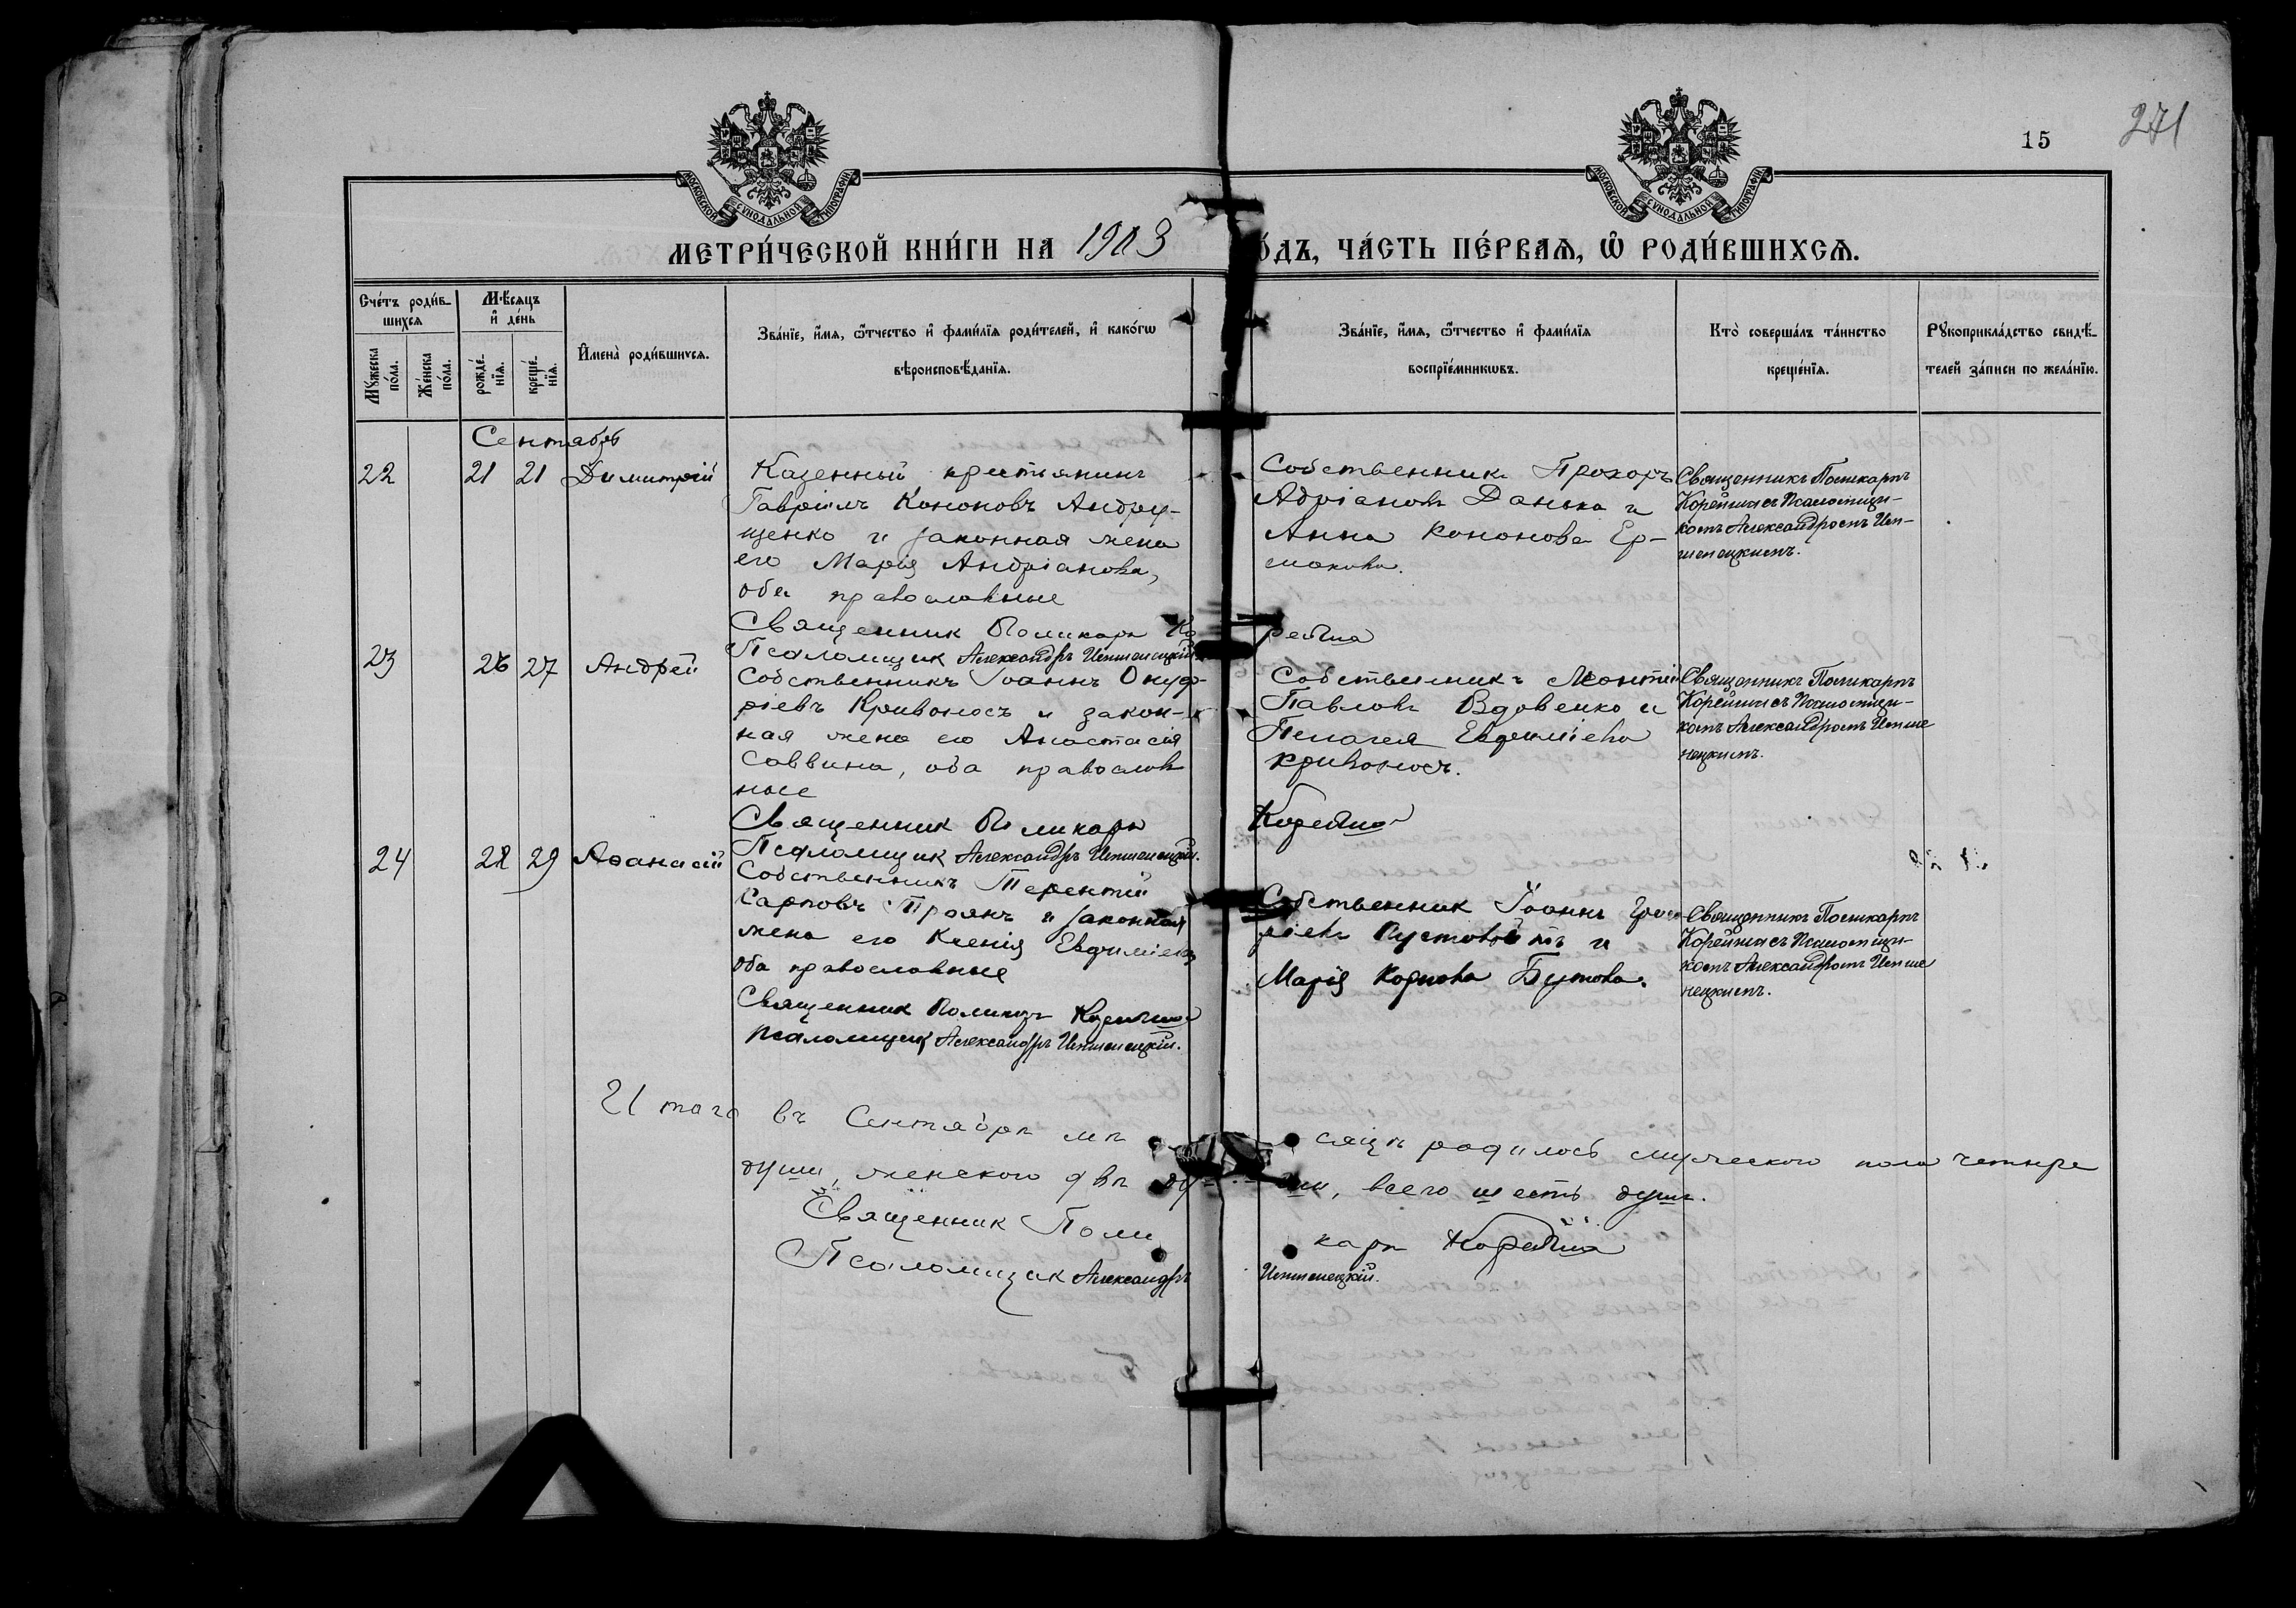 МОСКОВСКОЙ СУНОДАЛЬНОЙ ТИПОГРАФІИ
МОСКОВСКОЙ СУНОДАЛЬНОЙ ТИПОГРАФІИ
15
271
МЕТРИ́ЧЕСКОЙ КНИ́ГИ НА 1903 ГО́ДЪ, ЧА́СТЬ ПЕ́РВАѦ, Ѡ҆ РОДИ́ВШИХСѦ.
Сче́тъ роди́в-
шихсѧ
Мѣ́сѧцъ
и҆ де́нь
Мꙋ́жеска по́ла.
Же́нска по́ла.
рожде́-
нїѧ.
креще́-
нїѧ.
И҆мена̀ роди́вшихсѧ.
Зва́нїе, и҆́мѧ, ѻ҆́тчество и҆ фами́лїѧ роди́телей, и҆ како́гѡ
вѣроисповѣ́данїѧ.
Зва́нїе, и҆́мѧ, ѻ҆́тчество и҆ фами́лїѧ
воспрїе́мникѡвъ.
Кто̀ соверша́лъ та́инство
креще́нїѧ.
Рꙋкоприкла́дство свидѣ́-
телей за́писи по жела́нїю.
Сентябрь
22
21 21 Димитрій
Казенный крестьянинъ
Гавріилъ Кононовъ Андру-
щенко и законная жена
его Марія Андріанова,
оба православные
Собственникъ Прохоръ
Адріановъ Данько и
Анна Кононова Ер-
макова.
Священникъ Поликарпъ
Корейша съ Псаломщи-
комъ Александромъ
Священник Поликарп Корейша
Псаломщик Александръ
23
26 27 Андрей
Собственникъ Іоаннъ Онуф-
ріевъ Кривоносъ и закон-
ная жена его Анастасія
Саввина, оба православ
ные
Собственникъ Леонтій
Павловъ Вдовенко и
Пелагея Евфиміева
Кривоносъ.
Священникъ Поликарпъ
Корейша съ Псаломщи-
комъ Александромъ
Священник Поликарп Корейша
Псаломщик Александръ
24
28 29 Аѳанасій
Собственникъ Терентій
Карповъ Троянъ и законная
жена его Ксенія Евфиміева
оба православные
Собственник Іоаннъ
Пустовойтъ и
Марія Карпова Бутова.
Священникъ Поликарпъ
Корейша съ Псаломщи-
комъ Александромъ
Священник Поликарпъ Корейша
Псаломщик Александръ
Итого въ Сентябрѣ мѣсяцѣ родилось мужескаго пола четыре
души, женскаго двѣ души, всего шесть душъ.
Священник Поликарп Корейша
Псаломщик Александръ